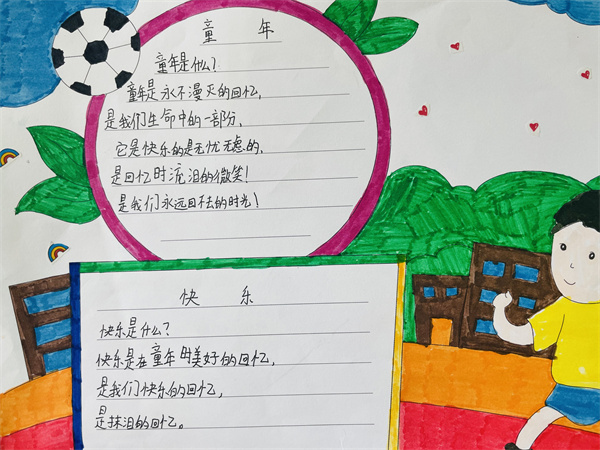 童 年
童年是什么?
童年是永不漫灭的回忆,
是我们生命中的一部分,
它是快乐的是无忧无虑的,
是回忆时流泪的微笑!
是我们永远回不去的时光!
快 乐
快乐是什么?
快乐是在童年时美好的回忆,
是我们快乐的回忆,
是抹泪的回忆。